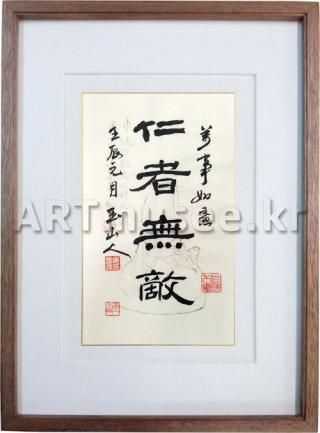 萬事如意
仁者無敵
壬辰元月 玉山人
ARTmusee.kr